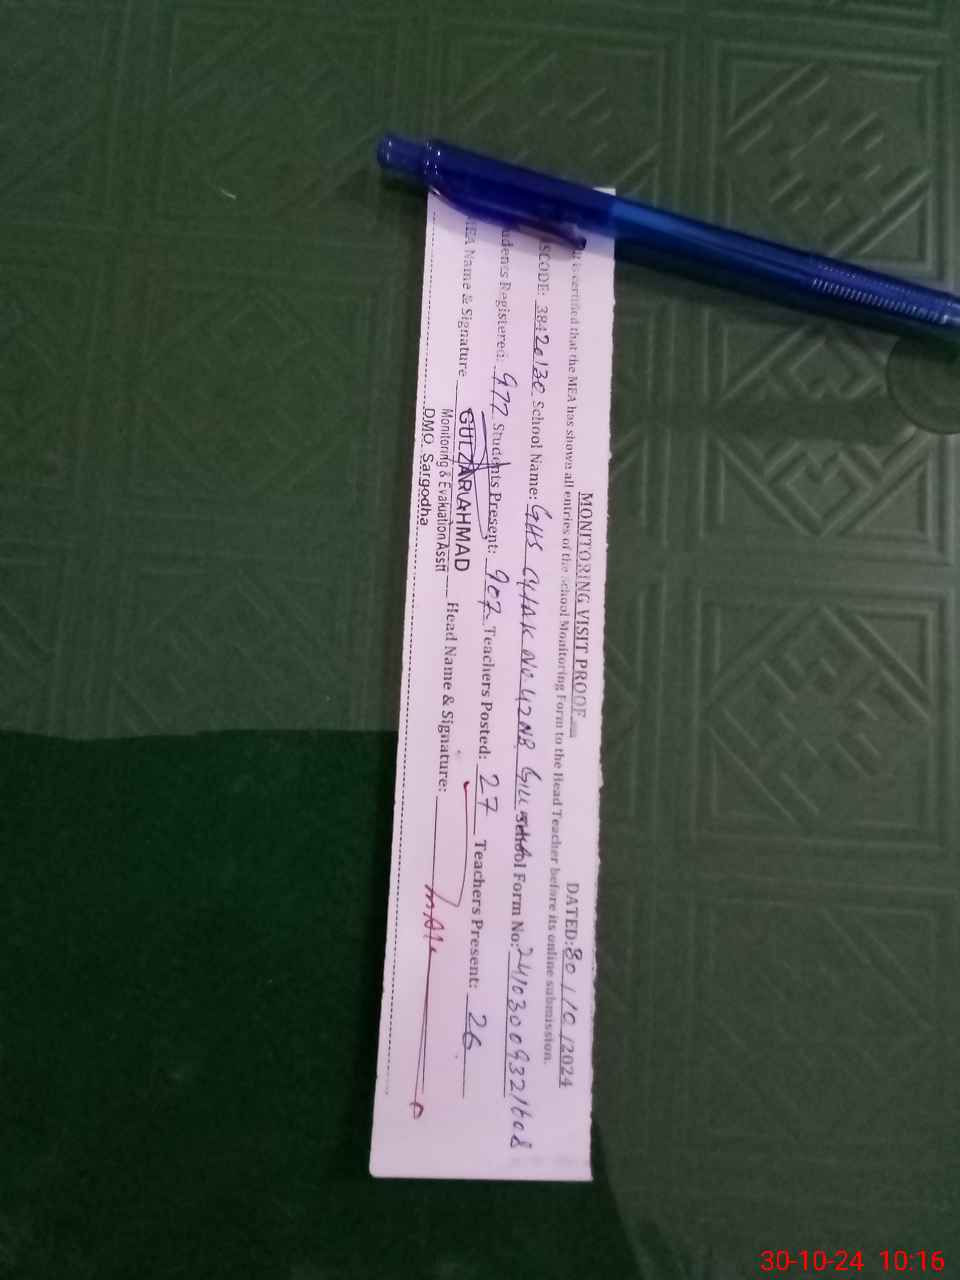 MONITORING VISIT PROOF
DATED: 30/10/2024
It is certified that the MEA has shown all entries of the School Monitoring Form to the Head Teacher before its online submission.
SCODE: 38420130 School Name: GHS CHAK NO 42 NB Gill Form No: 24103009321608
udents Registered: 977 Students Present: 907 Teachers Posted: 27 Teachers Present: 26
MEA Name & Signature GULZAR AHMAD Head Name & Signature:
Monitoring & Evaluation Asstt
DMO, Sargodha
30-10-24 10:16